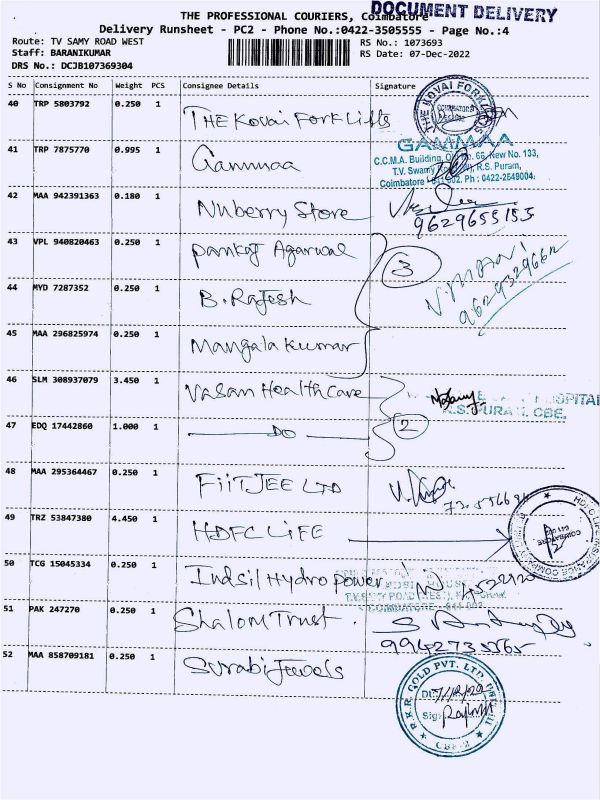 THE PROFESSIONAL COURIERS, Coimbatore
DOCUMENT DELIVERY
Delivery Runsheet - PC2 - Phone No.:0422-3505555 - Page No.:4
Route: TV SAMY ROAD WEST
Staff: BARANIKUMAR
DRS No.: DCJB107369304
RS No.: 1073693
RS Date: 07-Dec-2022
S No Consignment No Weight PCS Consignee Details Signature
40 TRP 5803792 0.250 1 THE Kovai Fork Lifts
THE KOVAI FORK
41 TRP 7875770 0.995 1 Gammaa
GAMMAA
C.C.M.A. Building, New No. 133,
T.V. Swamy R.S. Puram,
Coimbatore Ph : 0422-2549004
42 MAA 942391363 0.180 1 Nuberry Store
9629655153
43 VPL 940820463 0.250 1 Pankaj Agarwal
3
V.MANI
9629329662
44 MYD 7287352 0.250 1 B. Rajesh
45 MAA 296825974 0.250 1 Mangala Kumar
46 SLM 308937079 3.450 1 Vasan Healthcare
HOSPITAL
R.S. PURAM, CBE.
47 EDQ 17442860 1.000 1 DO
2
48 MAA 295364467 0.250 1 FIITJEE LTD
49 TRZ 53847380 4.450 1 HDFC LIFE
HDFC LIFE INSURANCE COMPANY
COIMBATORE
50 TCG 15045334 0.250 1 Indsil Hydro power
COIMBATORE - 641 002.
51 PAK 247270 0.250 1 Shalom Trust.
52 MAA 858709181 0.250 1 Surabi Jewels
GOLD PVT. LTD.
CBE-2